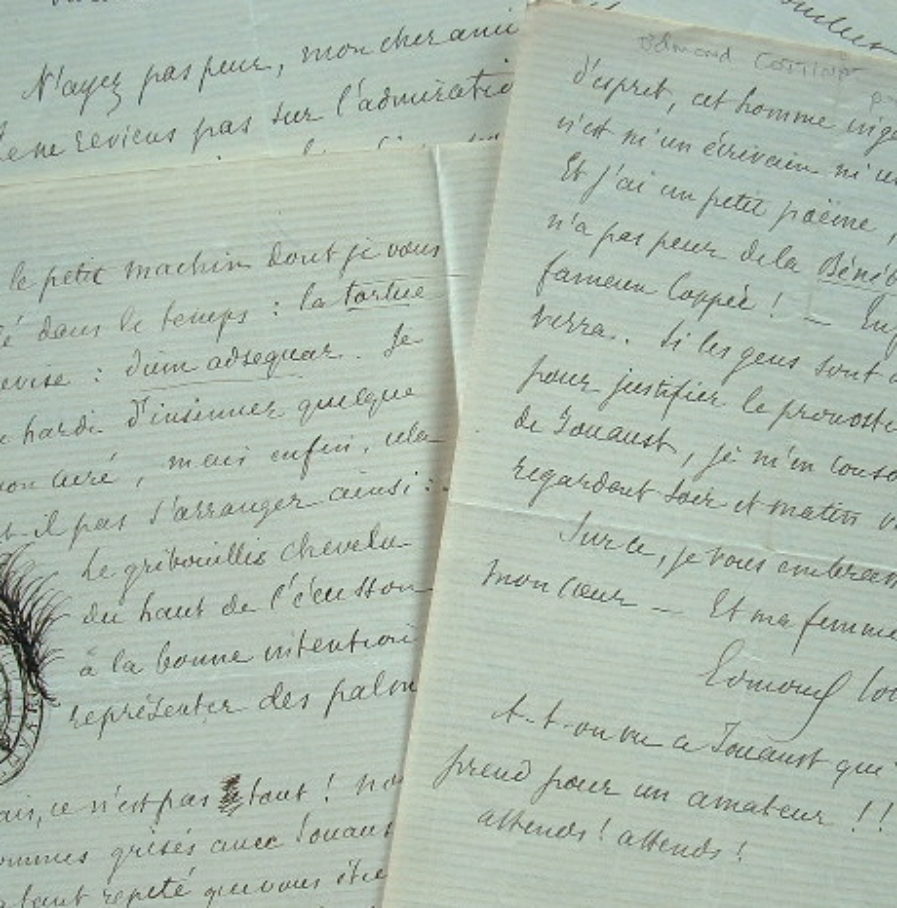 N'ayez pas peur, mon cher ami
ne reviens pas sur l'admiratio
le petit machin dont je vous
é dans le temps : la tortue
evise : dùm adsequar. Je
hardi d'insinuer quelque
mais enfin, cela
il pas s'arranger ainsi :
Le gribouillis chevelu
du haut de l'écusson
a la bonne intention
représenter des palm
ais, ce n'est pas tout ! No
ommes grisés avec Jouaus
tant répété que vous étie
Edmond Cottinet
d'espret, cet homme inge
n'est ni un écrivain ni u
Et j'ai un petit poëme,
n'a pas peur de la Bénéd
fameux Coppée ! — Enf
verra. Si les gens sont
pour justifier le pronosti
de Jouaust, je m'en conso
regardant soir et matin v
Sur ce, je vous embrass
mon cœur — Et ma femme
Edmond Co
A-t-on vu ce Jouaust qui
prend pour un amateur !!
attends ! attends !